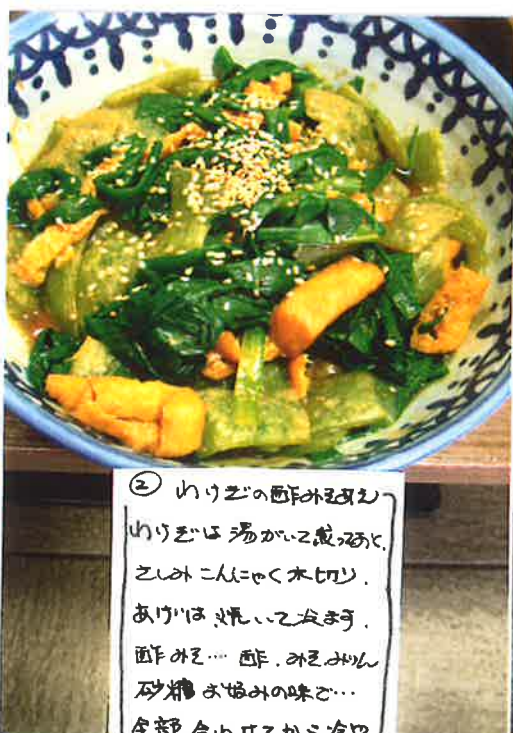 ② わけぎの酢みそあえ
わけぎは湯がいて
さしみこんにゃく水切り、
あげは、焼いて冷ます。
酢みそ… 酢、みそ、みりん
砂糖 お好みの味で…
全部 合わせてから